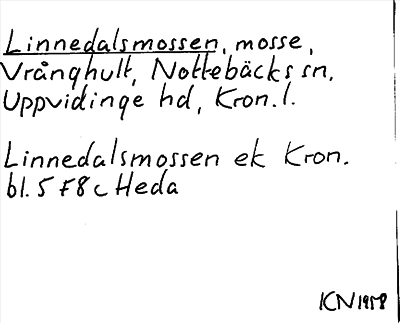 Linnedalsmossen, mosse,
Vrånghult, Nottebäcks sn,
Uppvidinge hd, Kron. l.
Linnedalsmossen ek Kron.
bl. 5 F8c Heda
KN 1958